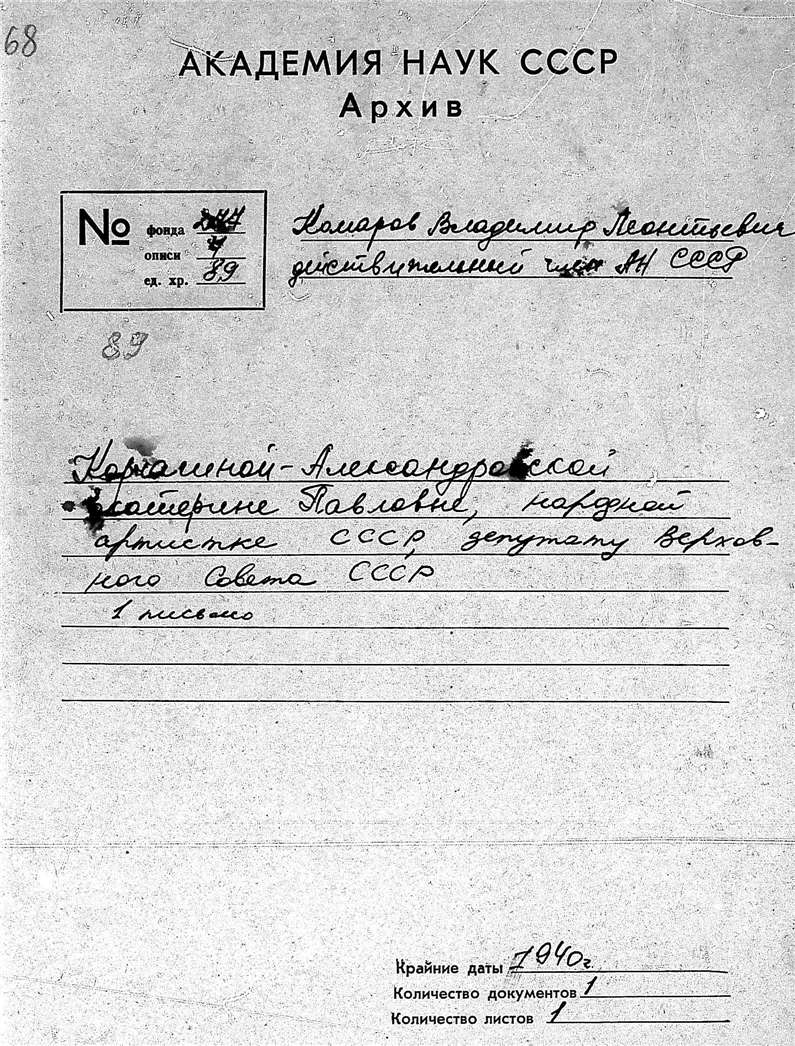 68
АКАДЕМИЯ НАУК СССР
Архив
№ фонда 277
описи 4
ед. хр. 89
Комаров Владимир Леонтьевич
действительный член АН СССР
89
Корчагиной-Александровской
Екатерине Павловне, народной
артистке СССР, депутату Верхов-
ного Совета СССР
1 письмо
Крайние даты 1940г.
Количество документов 1
Количество листов 1